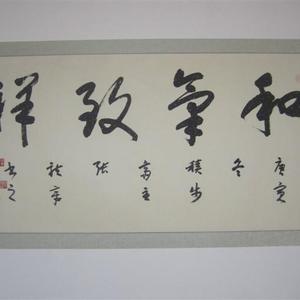 和氣致祥
庚寅
冬
積步
齋主
張
書之